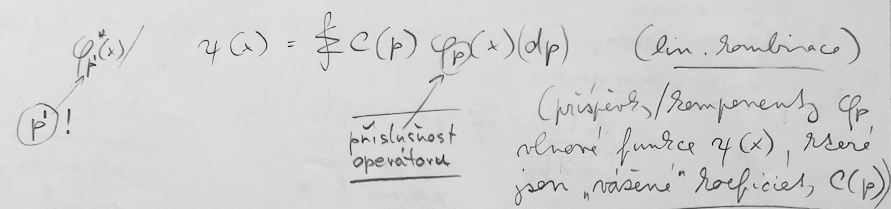 φ*p'(x)/ ψ(x) = ⨋ C(p) φp(x)(dp) (lin. kombinace)
p'!
příslušnost
operátoru
(příspěvky/komponenty φp
vlnové funkce ψ(x), které
jsou „vážené“ koeficienty C(p))